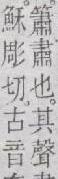 簫肅也其聲
穌彫切古音